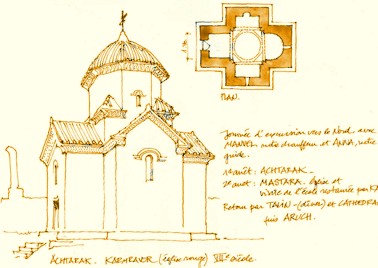 PLAN.
Journée d'excursion vers le Nord avec
MANVEL notre chauffeur et ANNA, notre
guide.
1er arrêt : ACHTARAK.
2e arrêt : MASTARA. église et
visite de l'école restaurée par
Retour par TALIN - et CATHEDRA
puis ARUCH.
ACHTARAK. KARMRAVOR (église rouge) VIIe siècle.